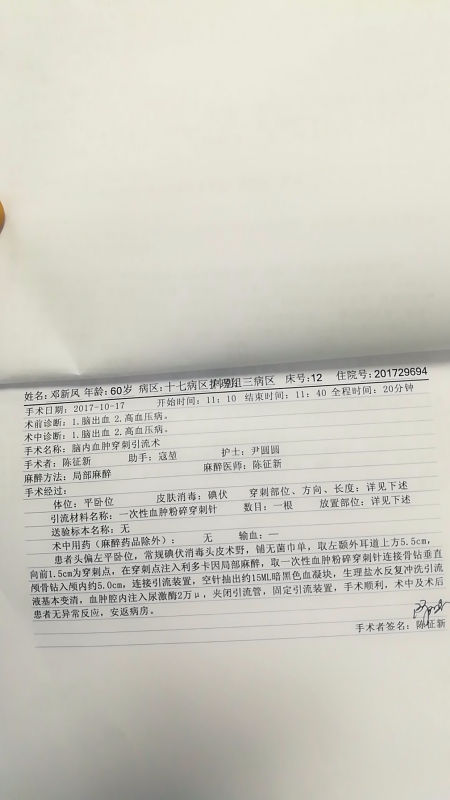 姓名:邓新风 年龄:60岁 病区:十七病区 三病区 床号:12 住院号:201729694
手术日期:2017-10-17 开始时间:11:10 结束时间:11:40 全程时间:20分钟
术前诊断:1.脑出血 2.高血压病。
术中诊断:1.脑出血 2.高血压病。
手术名称:脑内血肿穿刺引流术
手术者:陈征新 助手:寇堃 护士:尹圆圆
麻醉方法:局部麻醉 麻醉医师:陈征新
手术经过:
体位:平卧位 皮肤消毒:碘伏 穿刺部位、方向、长度:详见下述
引流材料名称:一次性血肿粉碎穿刺针 数目:一根 放置部位:详见下述
送验标本名称:无
术中用药(麻醉药品除外): 无 输血:—
患者头偏左平卧位，常规碘伏消毒头皮术野，铺无菌巾单，取左额外耳道上方5.5cm,
向前1.5cm为穿刺点，在穿刺点注入利多卡因局部麻醉，取一次性血肿粉碎穿刺针连接骨钻垂直
颅骨钻入颅内约5.0cm，连接引流装置，空针抽出约15ML暗黑色血凝块，生理盐水反复冲洗引流
液基本变清，血肿腔内注入尿激酶2万μ，夹闭引流管，固定引流装置，手术顺利，术中及术后
患者无异常反应，安返病房。
手术者签名:陈征新